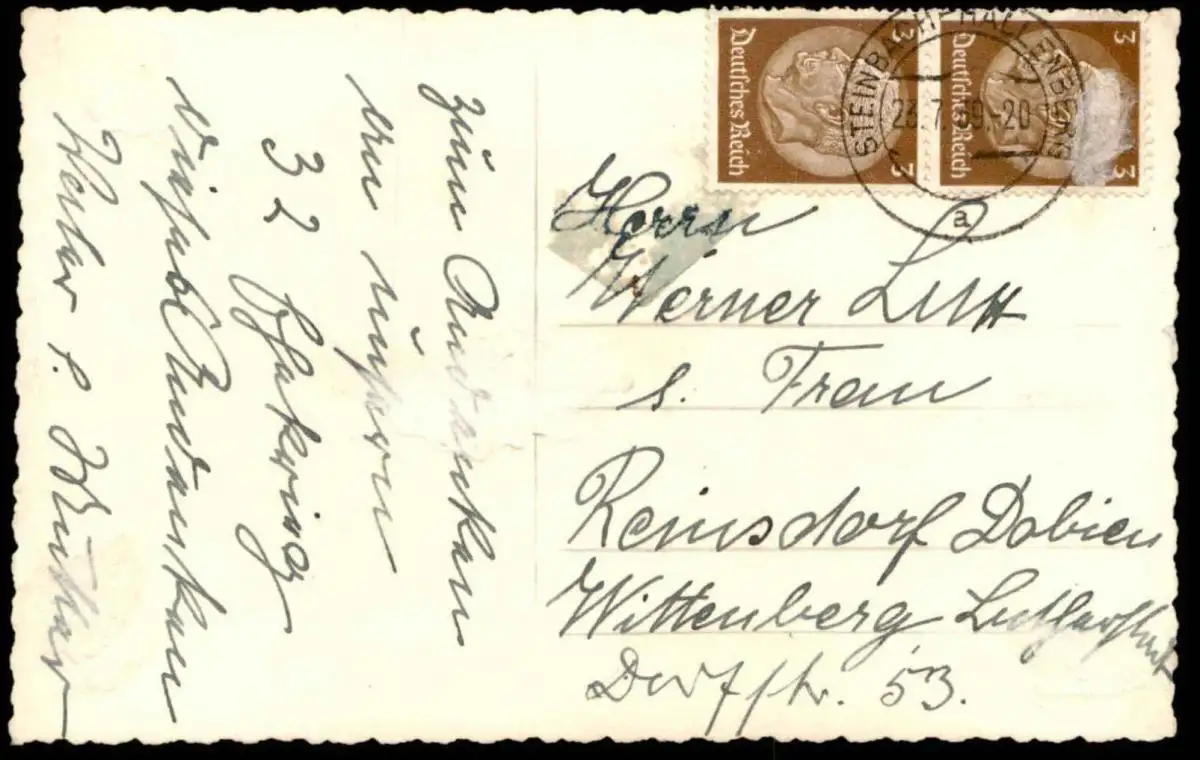 zum Andenken
an unsern
32
Andenken
3 Deutsches Reich 3
3 Deutsches Reich 3
STEINBACH-HALLENBERG
23.7.39.-20
a
Herrn
Werner
s. Frau
Reinsdorf Dobien
Wittenberg Lutherstadt
Dorfstr. 53.